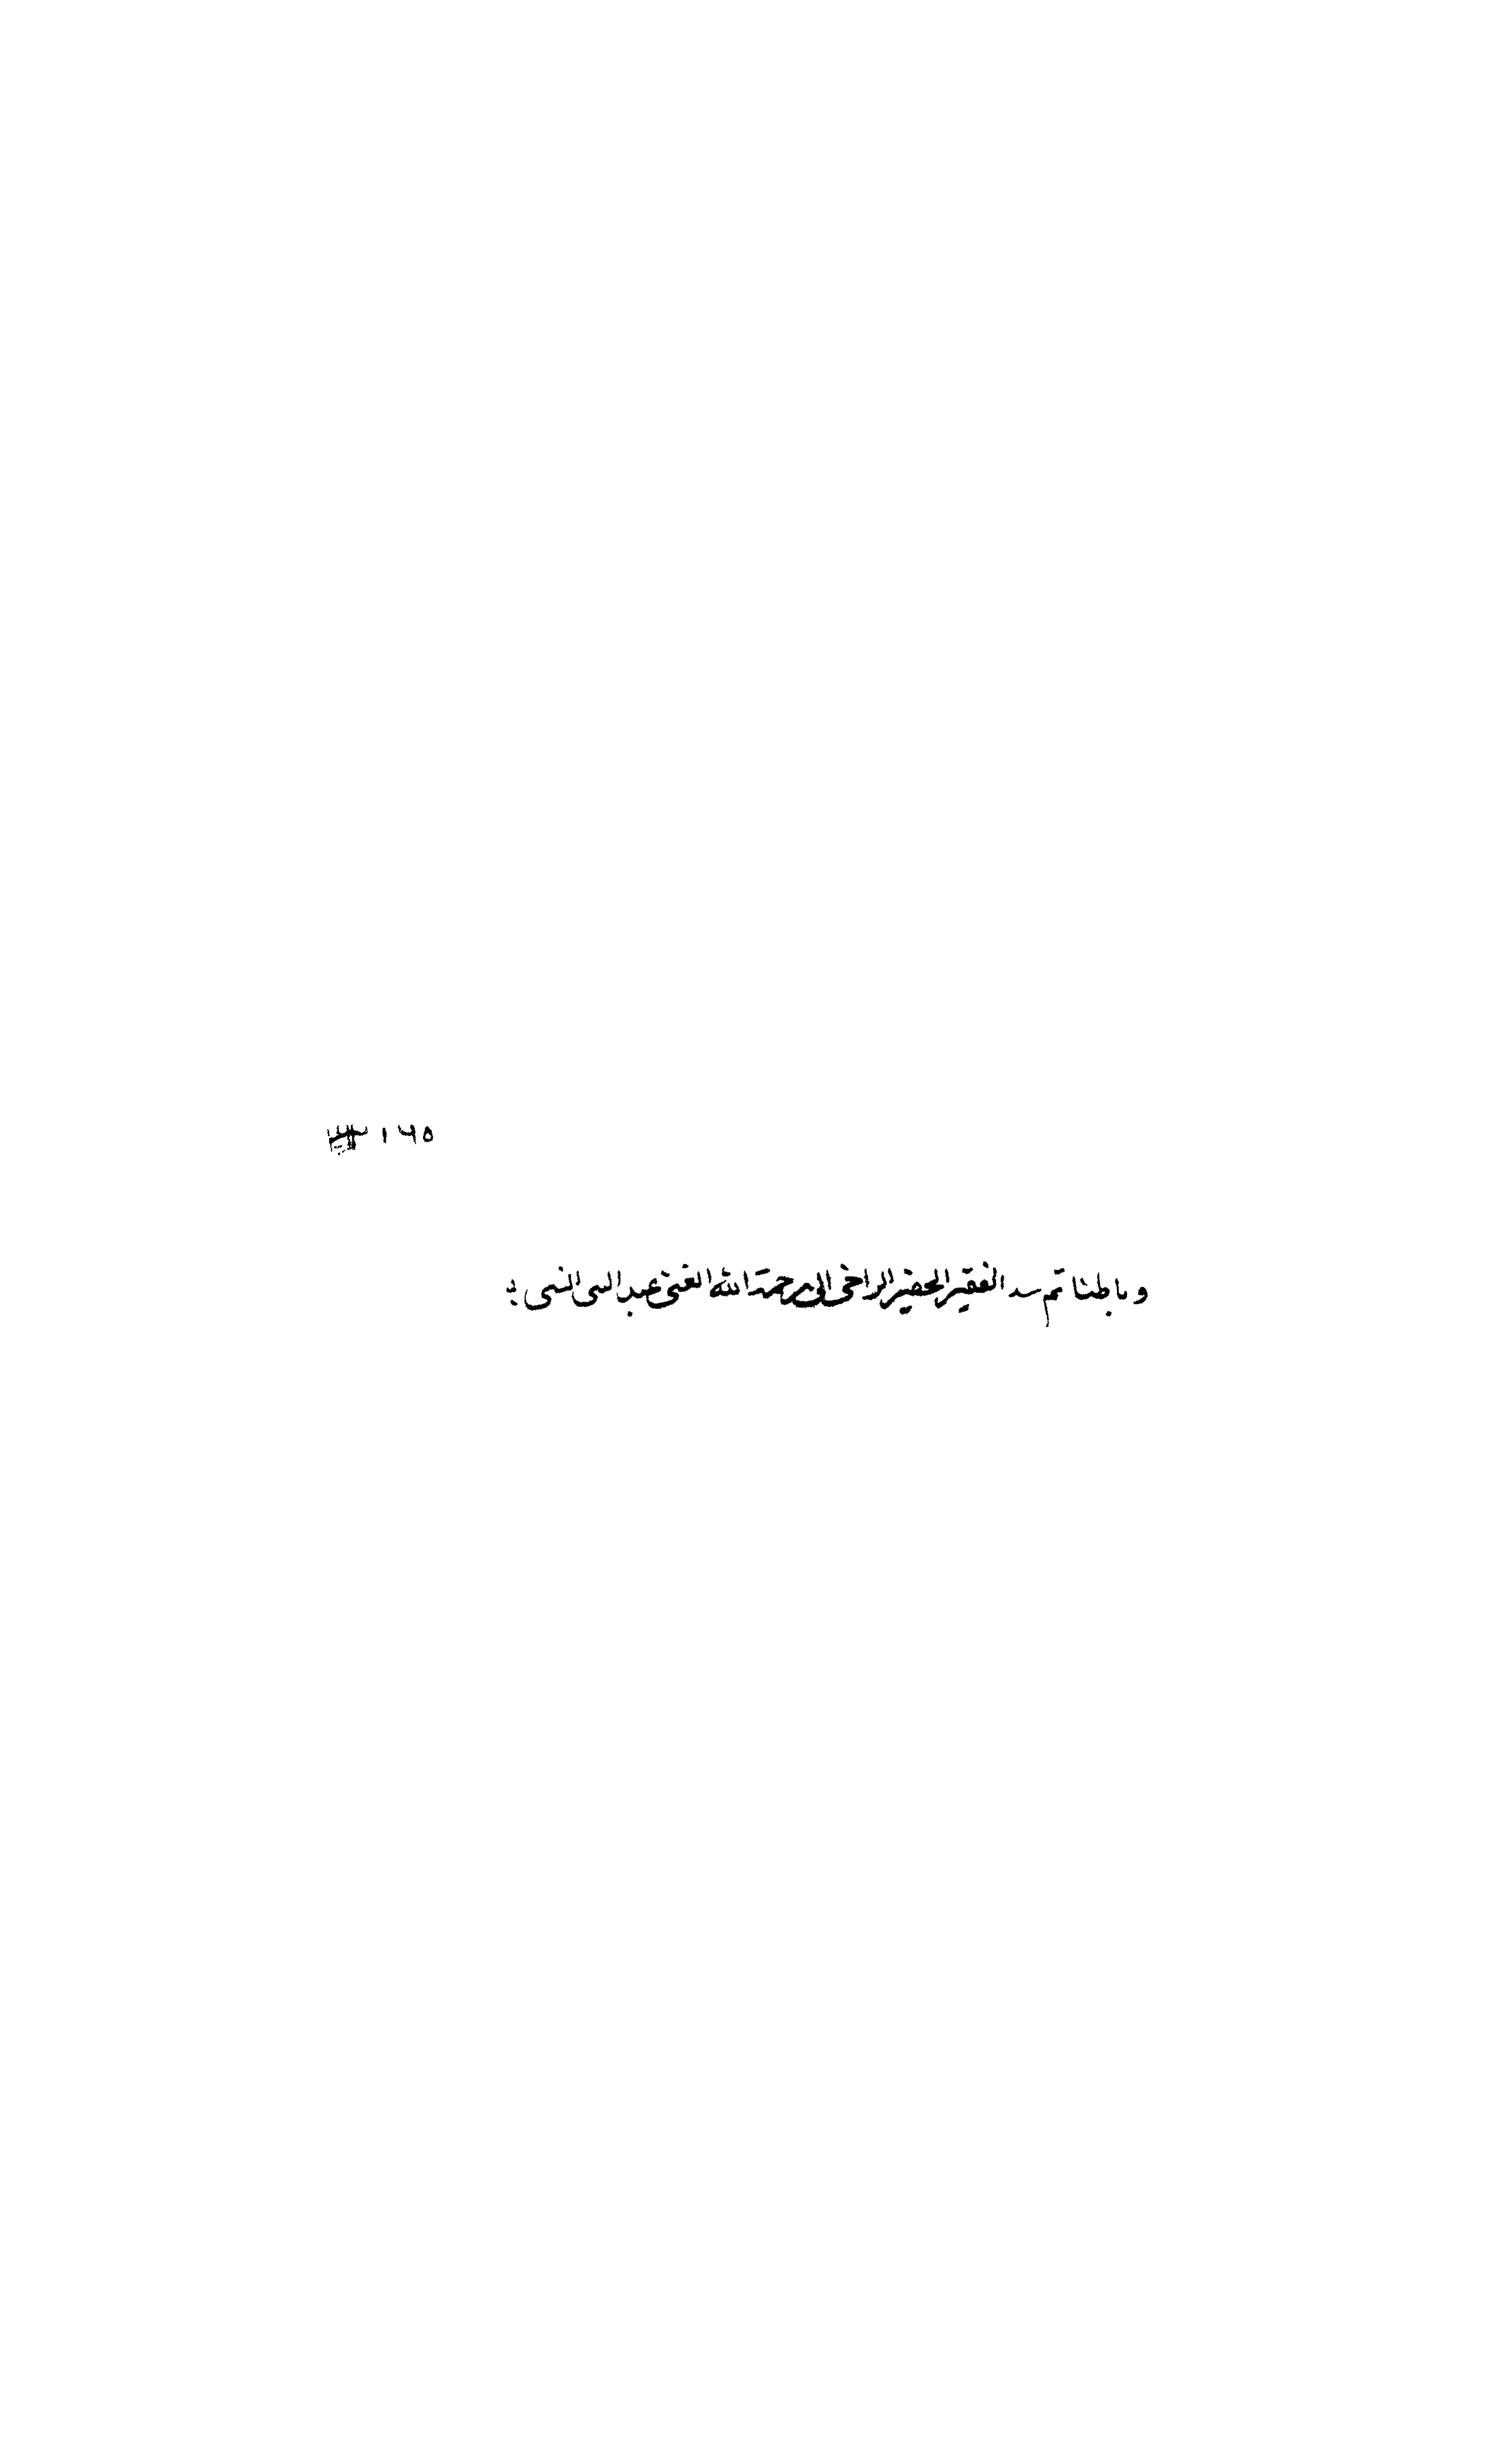 ١٦٥
وباطنا تم بيد الفقير الحقير الراجى الى رحمة الله الغنى عبد